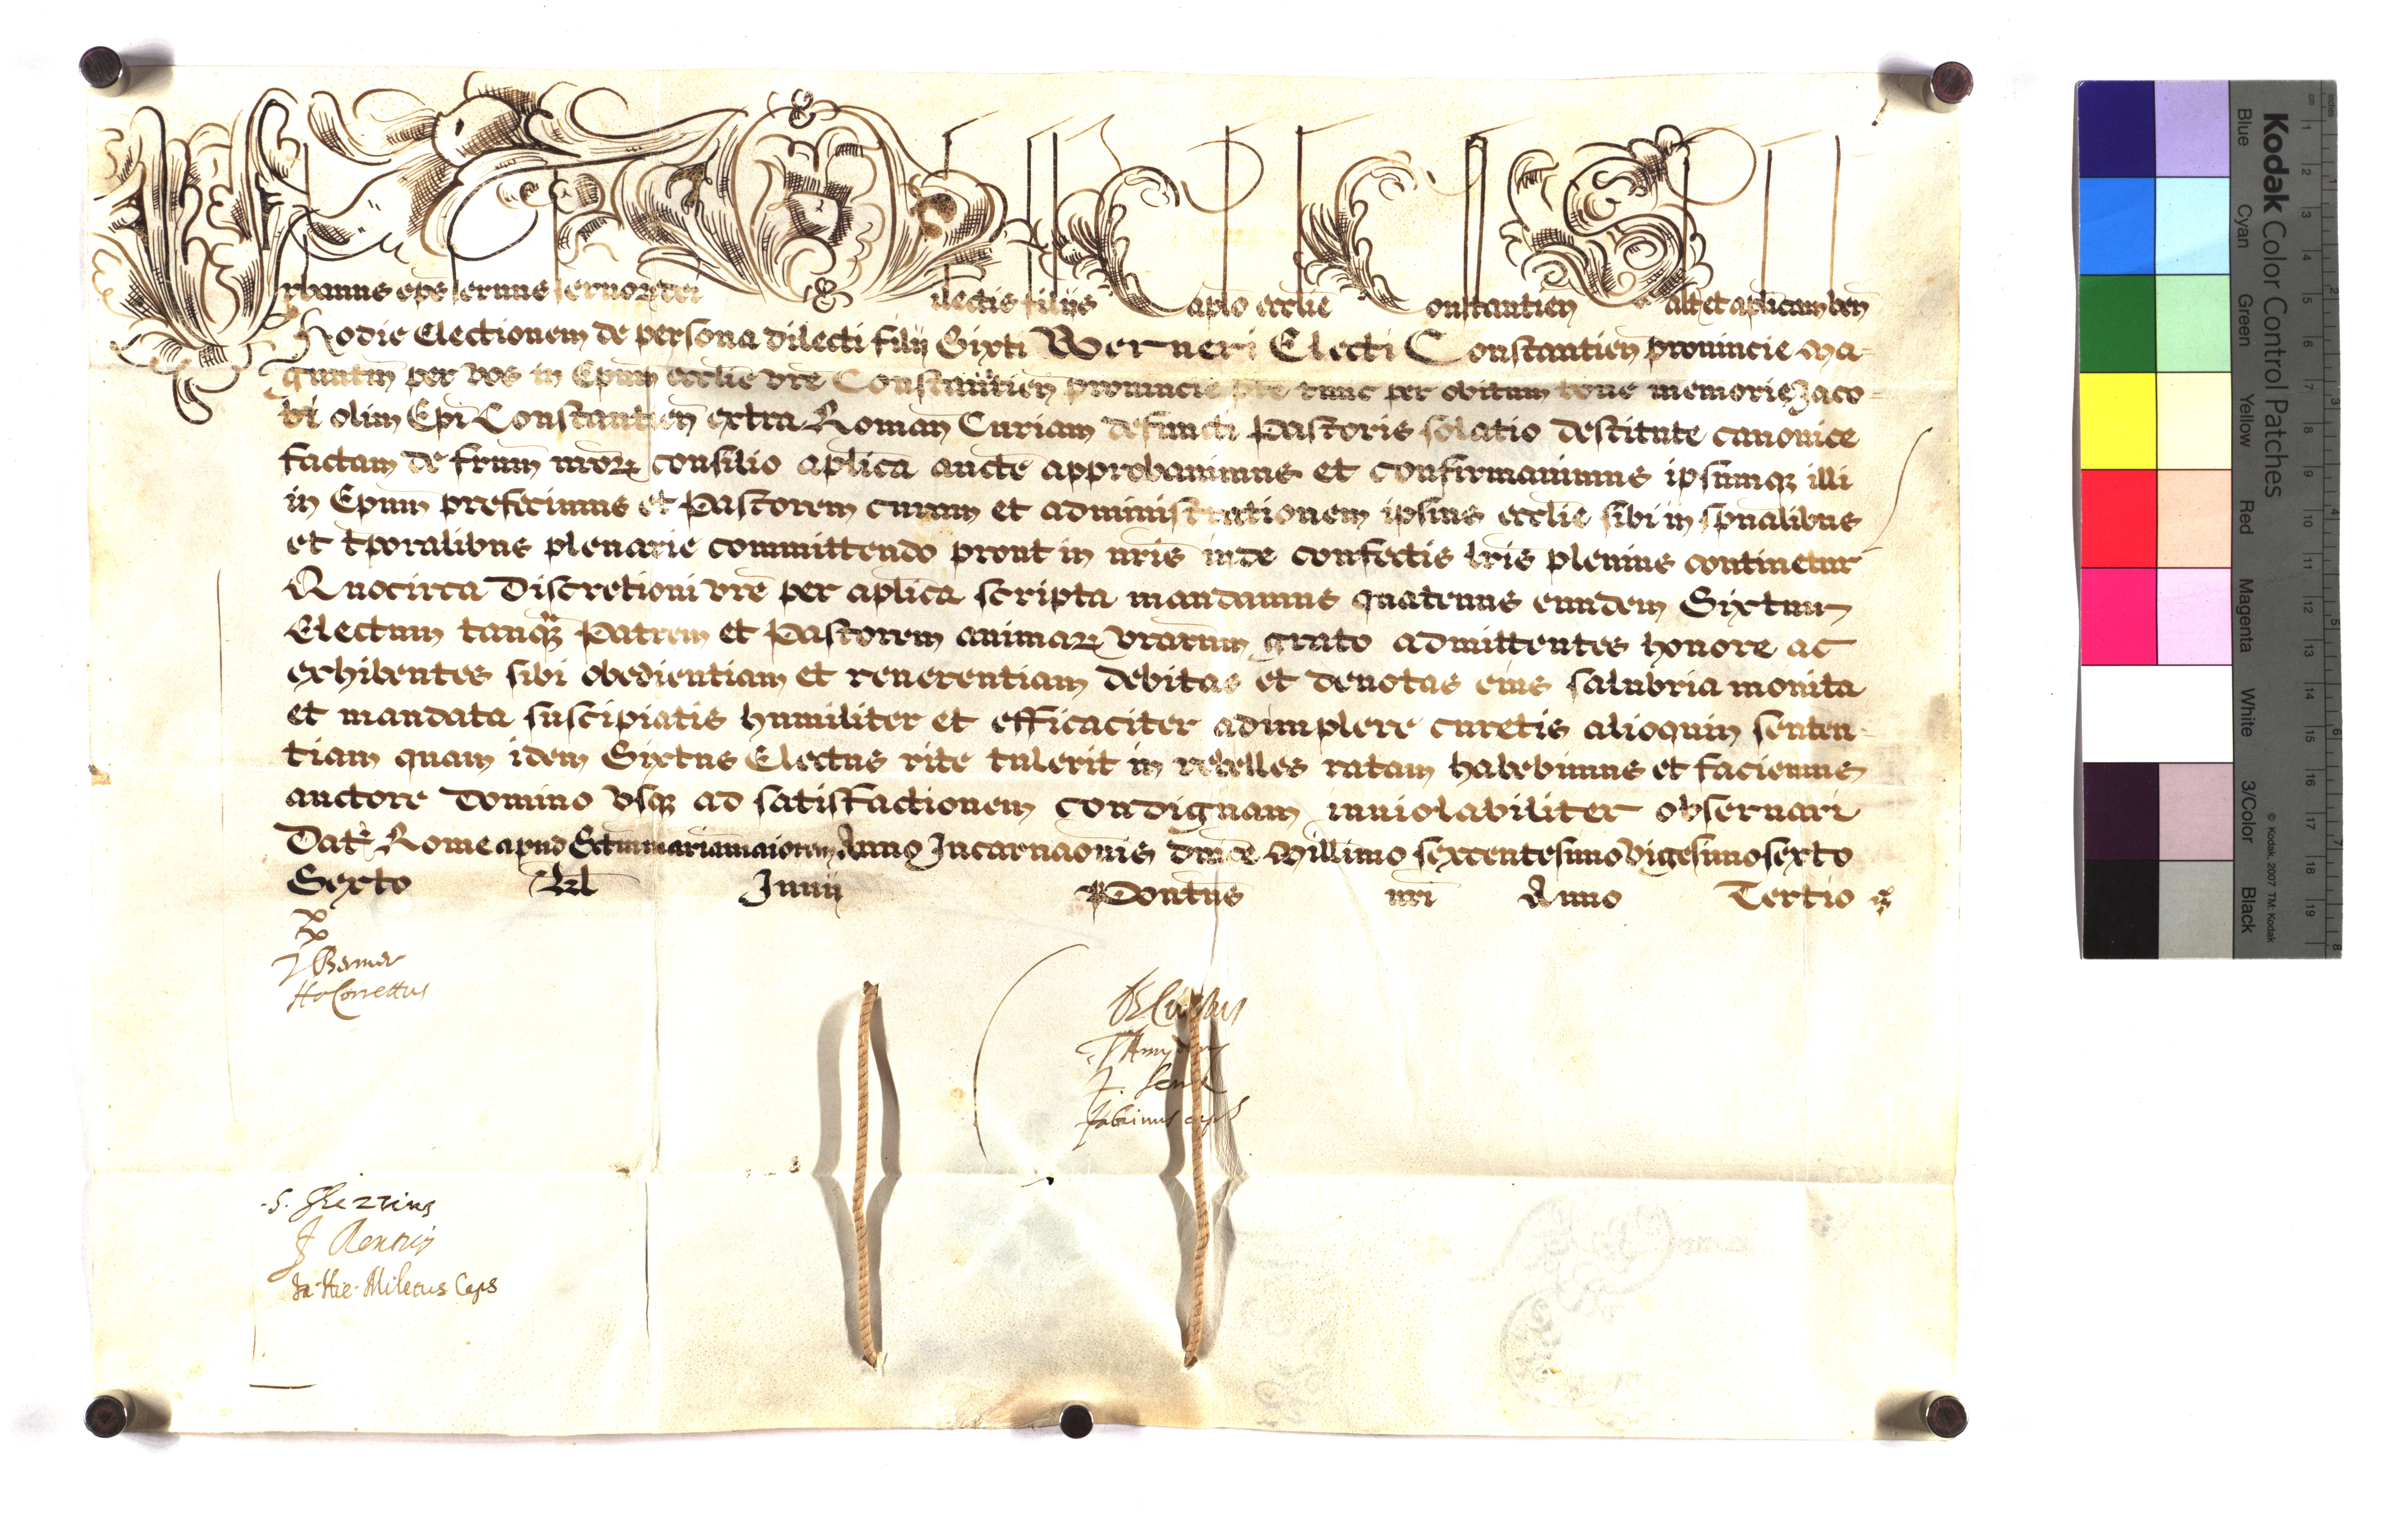 Urbanus eps servus servorum dei ilectis filiis Caplo ecclie Constantien Salt et aplicam ben
Hodie Electionem de persona dilecti filij Sixti Werneri Electi Constantien provincie Ma=
guntin per vos in Epum ecclie vre Constantien provincie tunc per obitum bone memorie Jaco=
bi olim Epi Constantien extra Roman Curiam defuncti Pastoris solatio destitute canonice
factam de frum nrorum consilio aplica aucte approbavimus et confirmavimus ipsumq illi
in Epum prefecimus et Pastorem curam et administrationem ipsius ecclie sibi in spualibus
et tporalibus plenarie committendo prout in nris inde confectis lris plenius continetur
Quocirca Discretioni vre per aplica scripta mandamus quatenus eundem Sixtum
Electum tanq Patrem et Pastorem animarum vrarum grato admittentes honore ac
exhibentes sibi obedientiam et reverentiam debitas et devotas eius salubria monita
et mandata suscipiatis humiliter et efficaciter adimplere curetis alioquin senten=
tiam quam idem Sixtus Electus rite tulerit in rebelles ratam habebimus et faciemus
auctore Domino usq ad satisfactionem condignam inviolabiliter observari
Dat Rome apud Sctam mariam maiorem Anno Incarnaonis dnice Millimo sexcentesimo vigesimo sexto
Sexto Kl Junii Pontus nri Anno Tertio
Kodak Color Control Patches
© Kodak, 2007 TM: Kodak
Blue Cyan Green Yellow Red Magenta White 3/Color Black
cm 1 2 3 4 5 6 7 8 9 10 11 12 13 14 15 16 17 18 19
inches 1 2 3 4 5 6 7 8